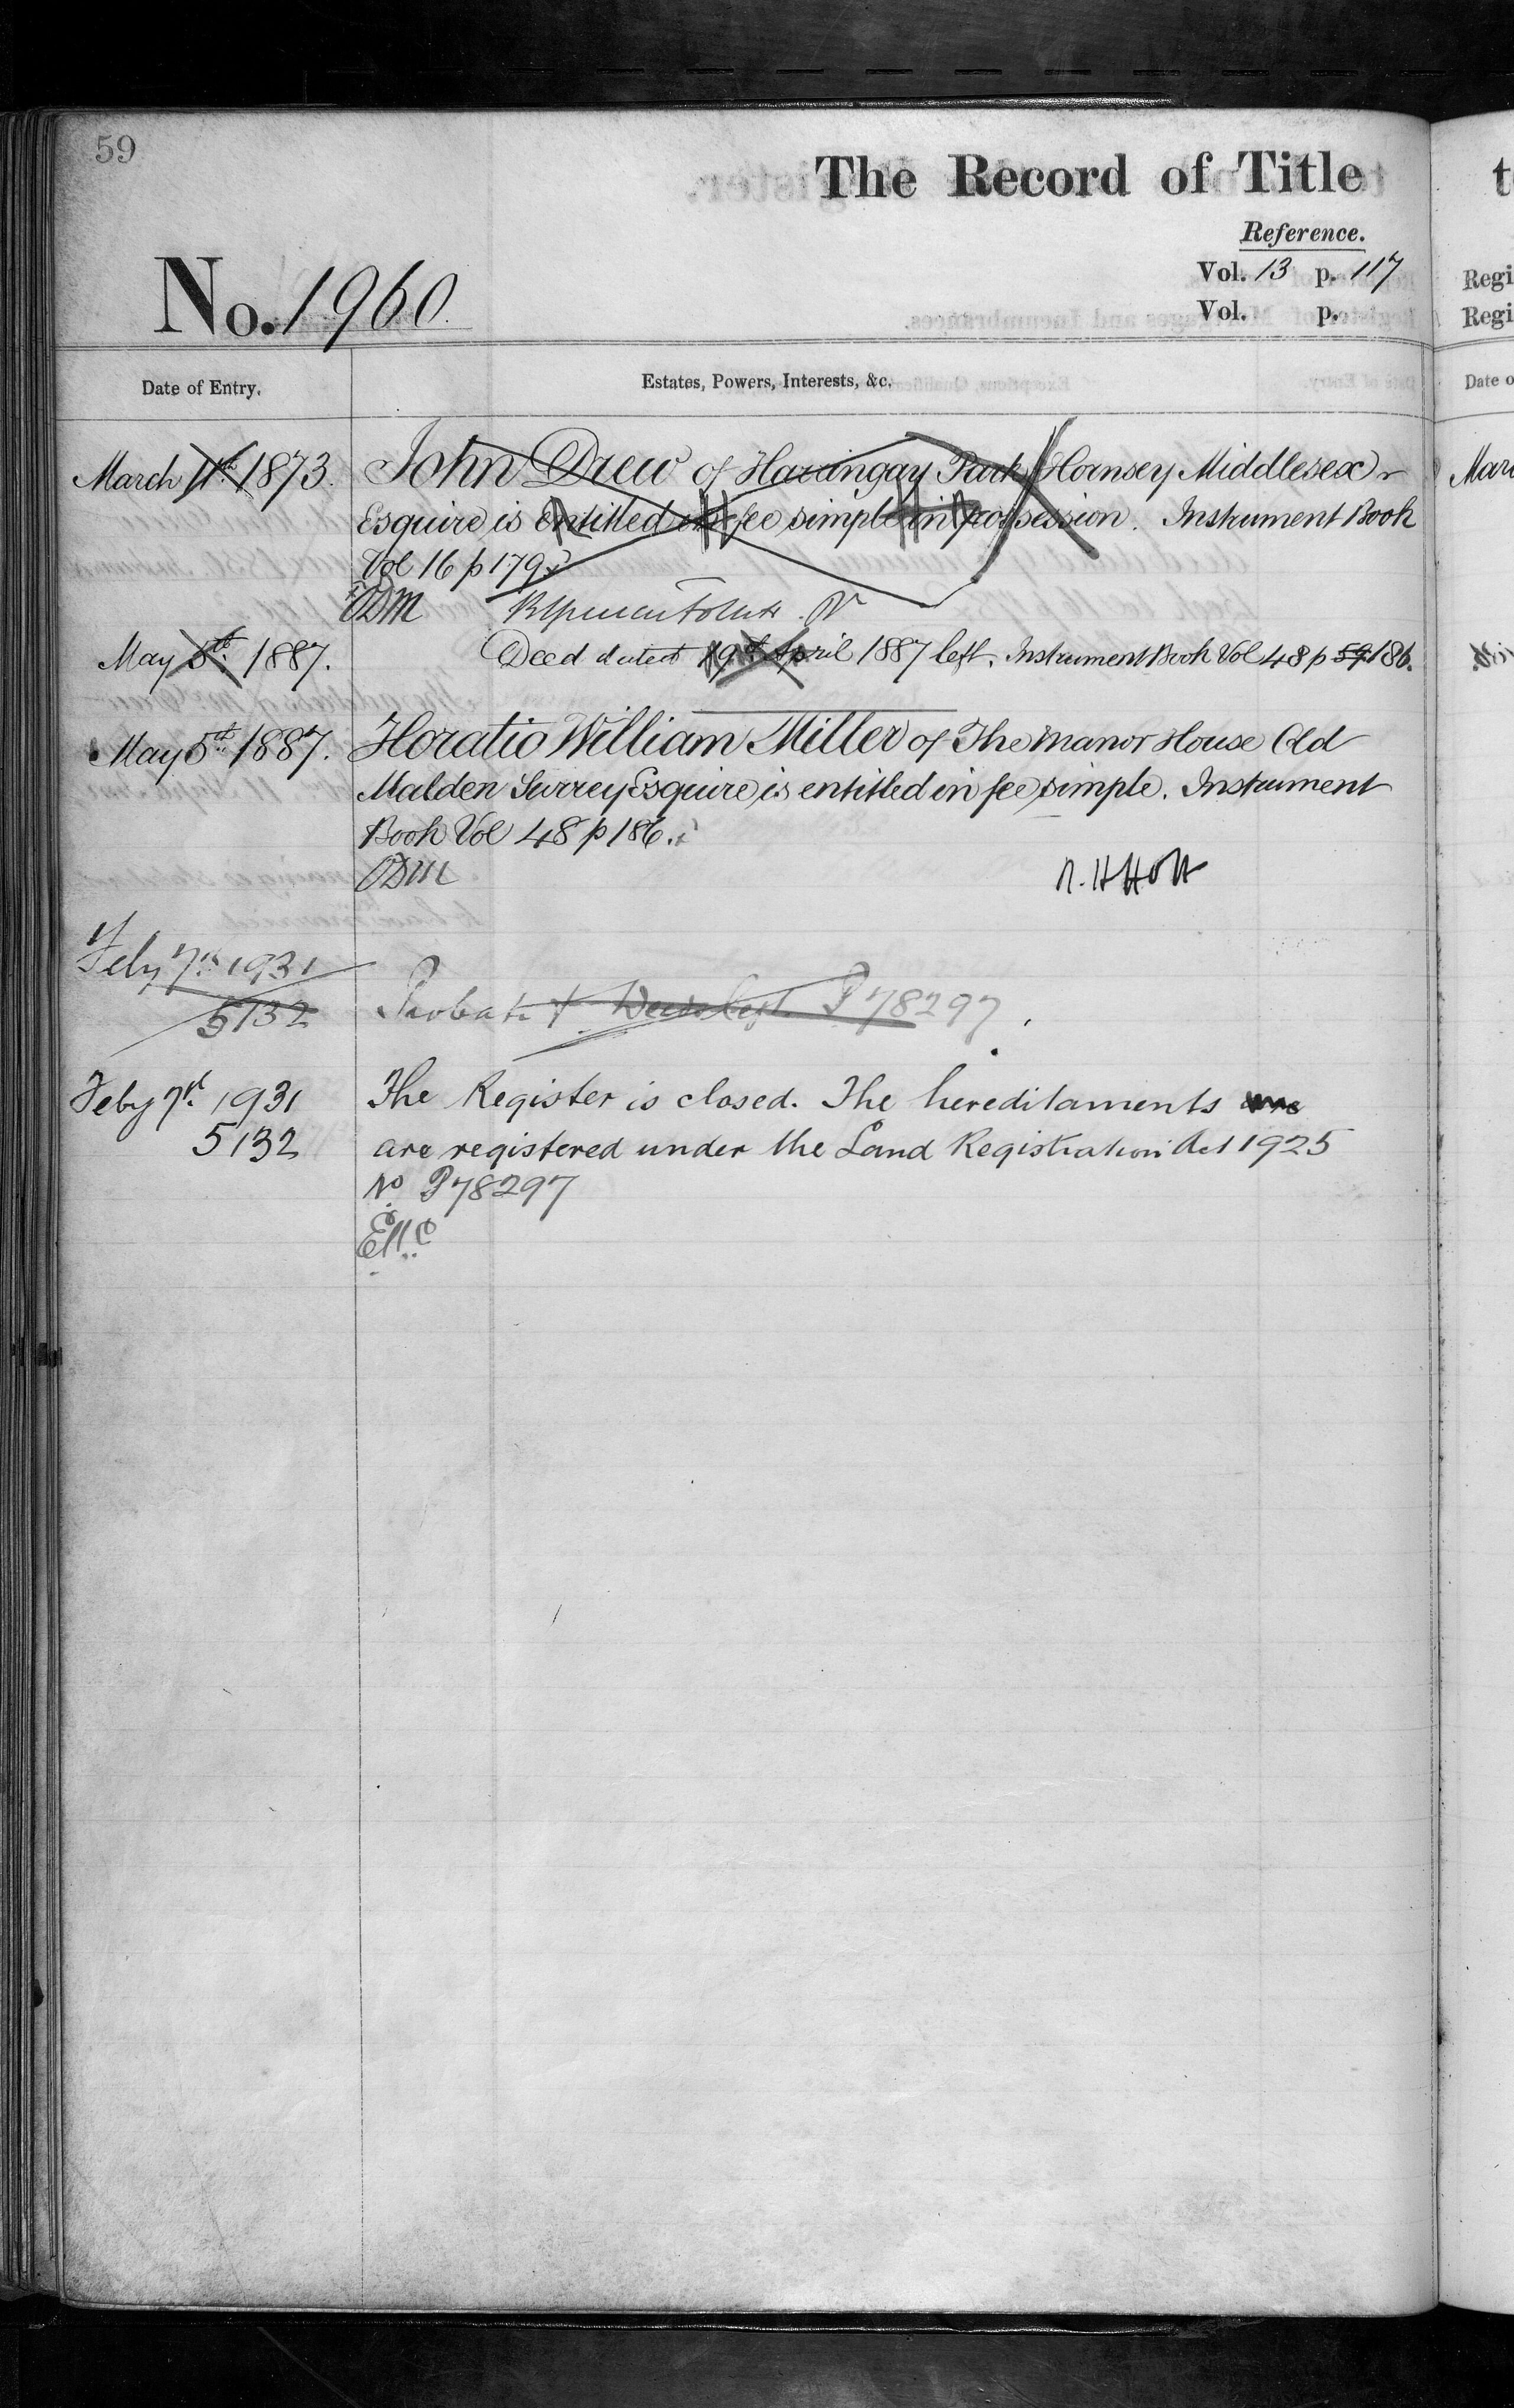 59
The Record of Title
Reference.
Vol. 13 p. 117
Vol. p.
No. 1960
Date of Entry.
Estates, Powers, Interests, &c.
March 11th 1873. John Drew of Haringay Park Hornsey Middlesex
Esquire is entitled in fee simple in possession. Instrument Book
Vol 16 p 179.
ODM
May 5th 1887. Deed dated 19th April 1887 left. Instrument Book Vol 48 p 59 186.
May 5th 1887. Horatio William Miller of The Manor House Old
Malden Surrey Esquire is entitled in fee simple. Instrument
Book Vol 48 p 186.
ODM
R. H Holt
Feby 7th 1931
5132 Probate & Deeds left P78297.
Feby 7th 1931 The Register is closed. The hereditaments are
5132 are registered under the Land Registration Act 1925
No P78297
t
Regi
Regi
Date o
Marc